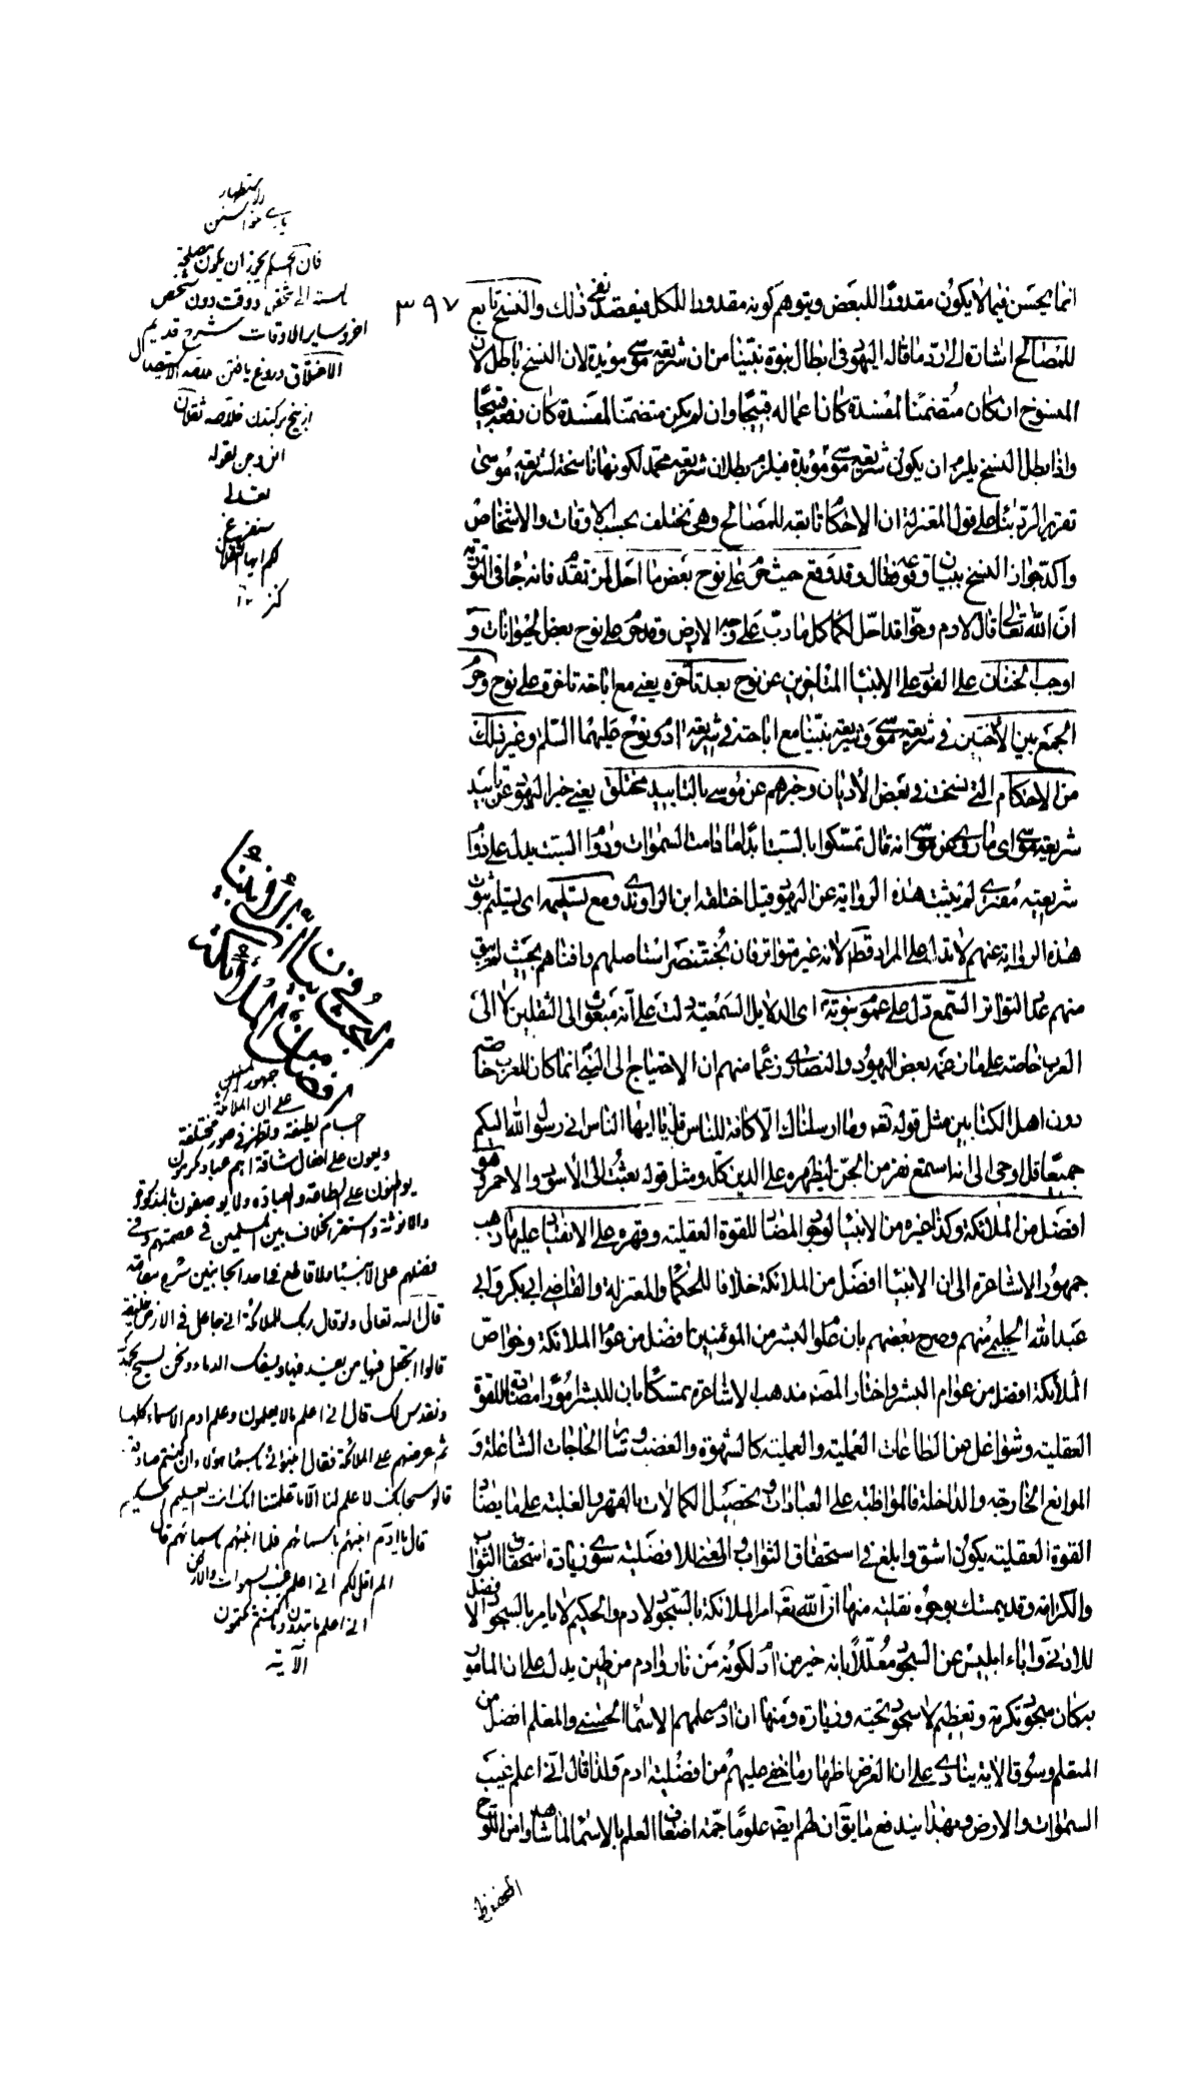 انما يحسن فيما لا يكون مقدورا للبعض ويتوهم كونه مقدورا للكل فيقصد نفى ذلك والنسخ تابع
٣٩٧
للمصالح اشارة الى رد ما قاله اليهود فى ابطال نبوة نبينا من ان شريعة موسى مؤبدة لان النسخ باطل لان
المنسوخ ان كان متضمنا لمفسدة كان اعماله قبيحا وان لم يكن متضمنا لمفسدة كان رفعه قبيحا
واذا بطل النسخ يلزم ان يكون شريعة موسى مؤبدة فيلزم بطلان شريعة محمد لكونها ناسخة لشريعة موسى
تقرير الرد بناء على قول المعتزلة ان الاحكام تابعة للمصالح وهى تختلف بحسب الاوقات والاشخاص
واكد جواز النسخ ببيان وقوعه فقال وقد وقع حيث حرم على نوح بعض ما احل لمن تقدم فانه جاء فى التورية
ان الله تعالى قال لادم وحوا قد احل لكما كل ما دب على وجه الارض وقد حرم على نوح بعض الحيوانات و
اوجب الختان على الفور على الانبياء المتاخرين عن نوح بعد تاخره يعنى مع اباحة تاخره على نوح وحرم
الجمع بين الاختين فى شريعة موسى وشريعة نبينا مع اباحته فى شريعة ادم ونوح عليهما السلم وغير ذلك
من الاحكام التى نسخت فى بعض الاديان وخبرهم عن موسى بالتابيد مختلق يعنى خبر اليهود عن تابيد
شريعة موسى اى ما روى عن موسى انه قال تمسكوا بالسبت ابدا ما دامت السموات ودوام السبت يدل على دوام
شريعته مفترى لم يثبت هذه الرواية عن اليهود وقيل اختلقه ابن الراوندى ومع تسليمه اى تسليم ثبوت
هذه الرواية عنهم لا تدل على المراد قطعا لانه غير متواتر فان بختنصر استاصلهم وافناهم بحيث لم يبق
منهم عدد التواتر والسمع دل على عموم نبوته اى الدلايل السمعية دلت على انه مبعوث الى الثقلين لا الى
العرب خاصة على ما زعمه بعض اليهود والنصارى زعما منهم ان الاحتياج الى النبى انما كان للعرب خاصة
دون اهل الكتابين مثل قوله تعه وما ارسلناك الا كافة للناس قل يا ايها الناس انى رسول الله اليكم
جميعا قل اوحى الى انه استمع نفر من الجن ليظهره على الدين كله ومثل قوله بعثت الى الاسود والاحمر وهو
افضل من الملائكة وكذا غيره من الانبياء لوجود المضاد للقوة العقلية وقهره على الانقياد عليها ذهب
جمهور الاشاعرة الى ان الانبياء افضل من الملائكة خلافا للحكماء والمعتزلة والقاضى ابى بكر وابى
عبد الله الحليمى منهم وصرح بعضهم بان عوام البشر من المؤمنين افضل من عوام الملائكة وخواص
الملائكة افضل من عوام البشر واختار المصه مذهب الاشاعرة متمسكا بان للبشر امورا مضادة للقوة
العقلية وشواغل عن الطاعات العلمية والعملية كالشهوة والغضب وساير الحاجات الشاغلة و
الموانع الخارجة والداخلة فالمواظبة على العبادات وتحصيل الكمالات بالقهر والغلبة على ما يضاد
القوة العقلية يكون اشق وابلغ فى استحقاق الثواب ولا معنى للافضلية سوى زيادة استحقاق الثواب
والكرامة وقد يتمسك بوجوه نقلية منها ان الله تعه امر الملائكة بالسجود لادم والحكيم لا يامر بالسجود الافضل
للادنى واباء ابليس عن السجود معللا بانه خير من ادم لكونه من نار وادم من طين يدل على ان المامور
به كان سجود تكرمة وتعظيم لا سجود تحية وزيارة ومنها ان ادم علمهم الاسماء الحسنى والمعلم افضل من
المتعلم وسوق الاية ينادى على ان الغرض اظهار ما خفى عليهم من افضلية ادم ولذا قال انى اعلم غيب
السموات والارض وبهذا يندفع ما يق ان لهم ايضه علوما جمة اضعاف العلم بالاسماء لما شاهدوا من اللوح
المحفوظ
فان الحكم يجوز ان يكون مصلحة
بالنسبة الى شخص ووقت دون شخص
اخر وساير الاوقات شرح قديم
الاختلاق دروغ يافتن
لقوله
تعالى
سنفرغ
لكم ايها الثقلان
كنز
البحث فى بيان ان الانبياء افضل من الملائكة
جمهور المسلمين
على ان الملائكة
اجسام لطيفة وتظهر فى صور مختلفة
ويقوون على افعال شاقة هم عباد مكرمون
يواظبون على الطاعة والعبادة ولا يوصفون بالذكورة
والانوثة واستقر الخلاف بين المسلمين فى عصمتهم وفى
فضلهم على الانبياء ولا قاطع فى احد الجانبين شرح مقاصد
قال الله تعالى واذ قال ربك للملائكة انى جاعل فى الارض خليفة
قالوا اتجعل فيها من يفسد فيها ويسفك الدماء ونحن نسبح بحمدك
ونقدس لك قال انى اعلم ما لا تعلمون وعلم ادم الاسماء كلها
ثم عرضهم على الملائكة فقال انبئونى باسماء هؤلاء ان كنتم صادقين
قالوا سبحانك لا علم لنا الا ما علمتنا انك انت العليم الحكيم
قال يا ادم انبئهم باسمائهم فلما انبئهم باسمائهم قال
الم اقل لكم انى اعلم غيب السموات والارض
انى اعلم ما تبدون وما كنتم تكتمون
الآية